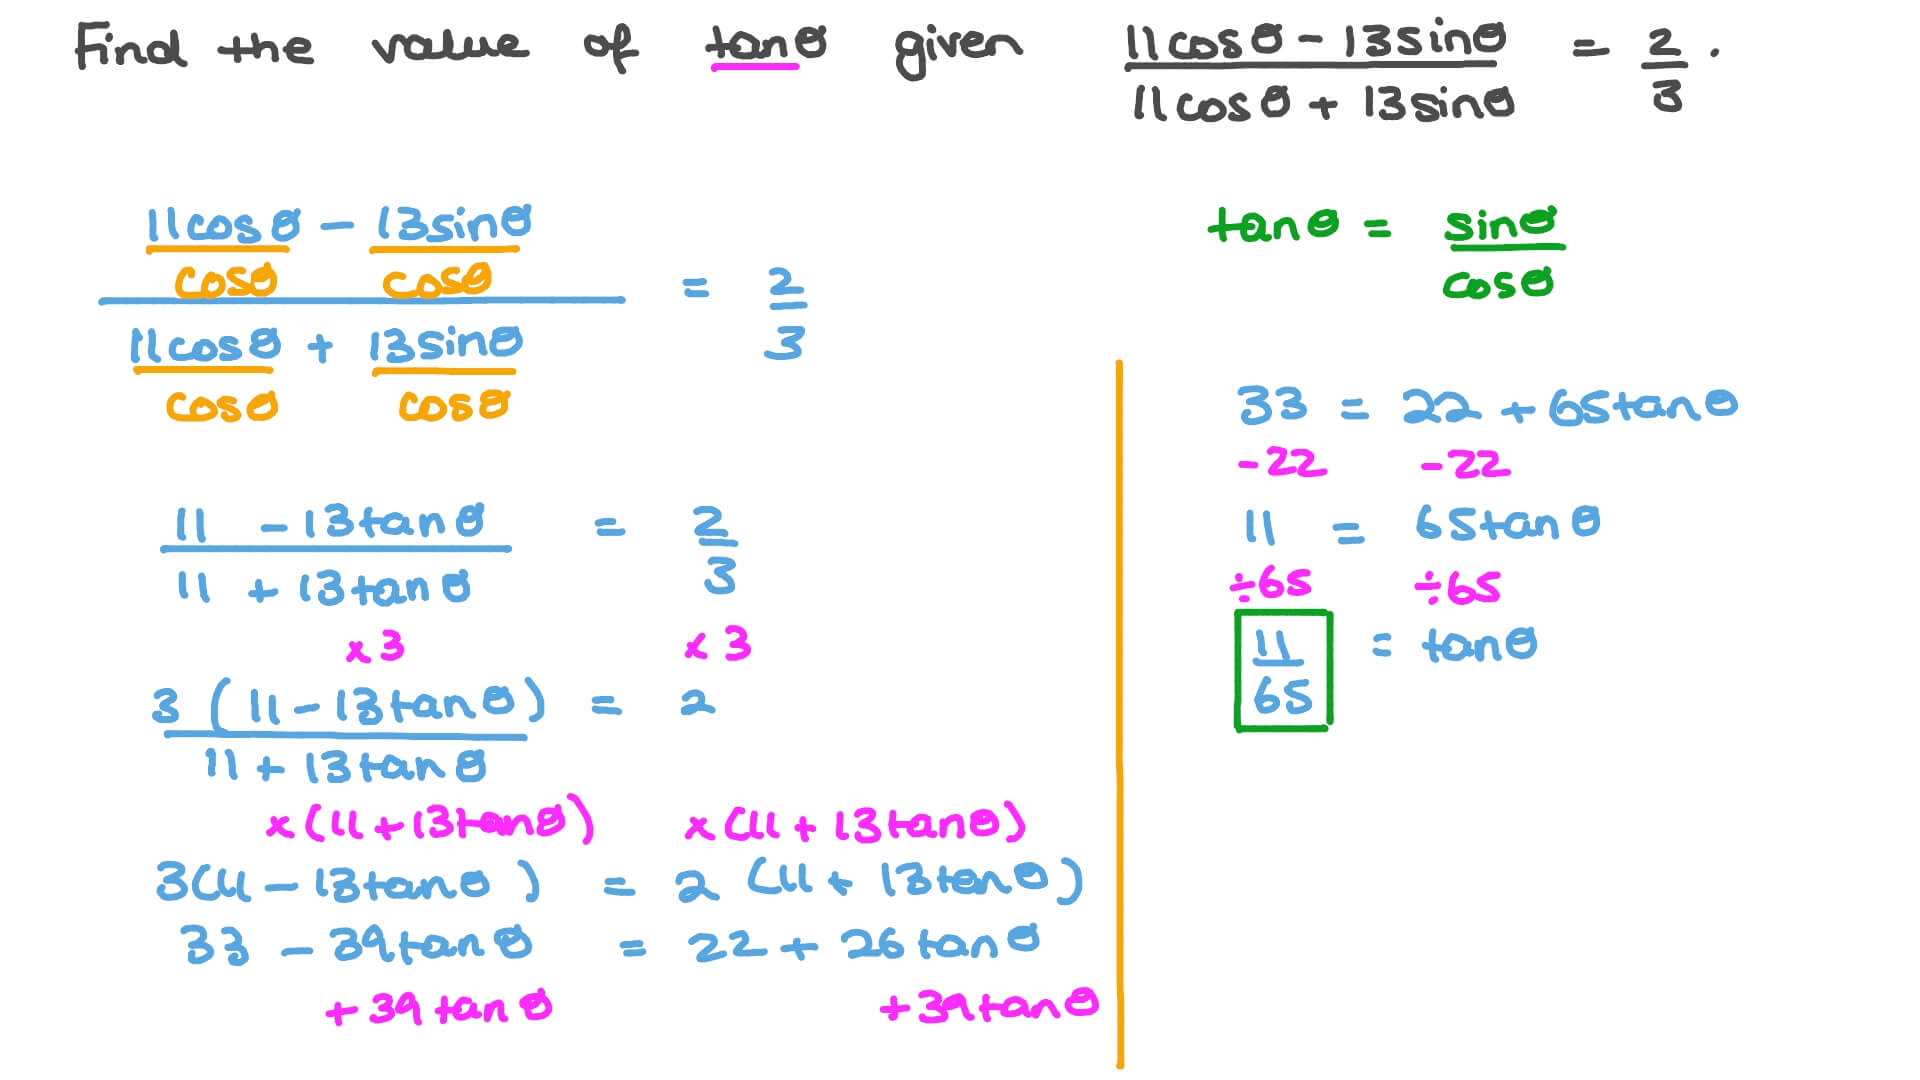 Find the value of tanθ given (11cosθ - 13sinθ)/(11cosθ + 13sinθ) = 2/3.
(11cosθ/cosθ - 13sinθ/cosθ)/(11cosθ/cosθ + 13sinθ/cosθ) = 2/3
(11 - 13tanθ)/(11 + 13tanθ) = 2/3
×3 ×3
3(11 - 13tanθ)/(11 + 13tanθ) = 2
×(11 + 13tanθ) ×(11 + 13tanθ)
3(11 - 13tanθ) = 2(11 + 13tanθ)
33 - 39tanθ = 22 + 26tanθ
+39tanθ +39tanθ
tanθ = sinθ/cosθ
33 = 22 + 65tanθ
-22 -22
11 = 65tanθ
÷65 ÷65
11/65 = tanθ